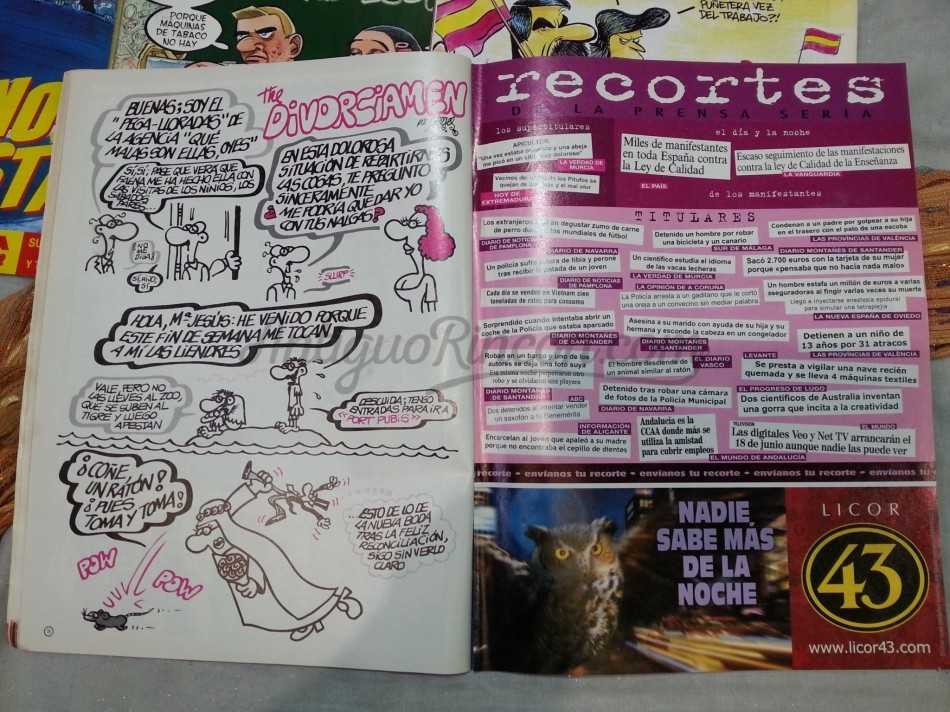 PORQUE
MAQUINAS
DE TABACO
NO HAY
PUÑETERA VEZ
DEL TRABAJO?!
BUENAS; SOY EL
"PEGA-LLORADAS" DE
LA AGENCIA "QUÉ
MALAS SON ELLAS, OYES"
the
DIVORCIAMEN
SÍ, SÍ, PASE QUE VERÁ QUÉ
FAENA ME HA HECHO ELLA CON
LAS VISITAS DE LOS NIÑOS, LOS
SÁBADOS
TARDES...
NO
ME
DIGAS!
SLRUPS
SÍ
EN ESTA DOLOROSA
SITUACIÓN DE REPARTIRNOS
LAS COSAS, TE PREGUNTO
SINCERAMENTE
¿ME PODRÍA QUEDAR YO
CON TUS NALGAS?
SURP
HOLA, Mª JESÚS: HE VENIDO PORQUE
ESTE FIN DE SEMANA ME TOCAN
A MÍ LAS LIENDRES
VALE, PERO NO
LAS LLEVES AL ZOO,
QUE SE SUBEN AL
TIGRE Y LUEGO
APESTAN
DESCUIDA; TENGO
ENTRADAS PARA IR A
"PORT PUBIS"
¡COÑE,
UN RATÓN!
¡PUES,
TOMA Y TOMA!
POW
POW
...ESTO DE LO DE
LA NUEVA BODA
TRAS LA FELIZ
RECONCILIACIÓN,
SIGO SIN VERLO
CLARO
recortes
DE LA PRENSA SERIA
los supertitulares
el día y la noche
APICULTOR
LA VERDAD DE
MURCIA
Vecinos de la calle los Pitufos se
quejan de
HOY DE
EXTREMADURA
Miles de manifestantes
en toda España contra
la Ley de Calidad
EL PAÍS
Escaso seguimiento de las manifestaciones
contra la ley de Calidad de la Enseñanza
LA VANGUARDIA
de los manifestantes
TITULARES
Los extranjeros podrán degustar zumo de carne
de perro durante los mundiales de fútbol
DIARIO DE NOTICIAS
DE PAMPLONA
Detenido un hombre por robar
una bicicleta y un canario
SUR DE MÁLAGA
Condenan a un padre por golpear a su hija
en el trasero con el palo de una escoba
LAS PROVINCIAS DE VALÈNCIA
DIARIO DE NAVARRA
Un policía sufre rotura de tibia y peroné
tras recibir la patada de un joven
DIARIO DE NOTICIAS
DE PAMPLONA
Un científico estudia el idioma
de las vacas lecheras
LA OPINIÓN DE A CORUÑA
DIARIO MONTAÑES DE SANTANDER
Sacó 2.700 euros con la tarjeta de su mujer
porque «pensaba que no hacía nada malo»
LAS PROVINCIAS DE VALÈNCIA
Cada día se venden en Vietnam cien
toneladas de ratas para consumo
LA VERDAD DE MURCIA
La Policía arresta a un gaditano que le cortó
una oreja a un convecino sin mediar palabra
Un hombre estafa un millón de euros a varias
aseguradoras al fingir varias veces su muerte
Llegó a inyectarse anestesia epidural
para simular una tetraplejia
LA NUEVA ESPAÑA DE OVIEDO
Sorprendido cuando intentaba abrir un
coche de la Policía que estaba aparcado
DIARIO MONTAÑES
DE SANTANDER
Asesina a su marido con ayuda de su hija y su
hermana y esconde la cabeza en un congelador
DIARIO MONTAÑES
DE SANTANDER
Detienen a un niño de
13 años por 31 atracos
LAS PROVINCIAS DE VALÈNCIA
Roban en un barco y uno de los
autores se deja una foto suya
Ese mismo coche propiciaron otro
robo y se olvidaron una playera
DIARIO MONTAÑES
DE SANTANDER
El hombre desciende de
un animal similar al ratón
EL DIARIO
VASCO
LEVANTE
Se presta a vigilar una nave recién
quemada y se lleva 4 máquinas textiles
EL PROGRESO DE LUGO
ABC
Dos detenidos al intentar vender
un saxofón a la Benemérita
INFORMACIÓN
DE ALICANTE
Detenido tras robar una cámara
de fotos de la Policía Municipal
DIARIO DE NAVARRA
Dos científicos de Australia inventan
una gorra que incita a la creatividad
EL MUNDO
Encarcelan al joven que apaleó a su madre
porque no encontraba el cepillo de dientes
Andalucía es la
CCAA donde más se
utiliza la amistad
para cubrir empleos
EL MUNDO DE ANDALUCÍA
TELEVISIÓN
Las digitales Veo y Net TV arrancarán el
18 de junio aunque nadie las puede ver
recorte • envíanos tu recorte • envíanos tu recorte • envíanos tu recorte • envíanos tu
NADIE
SABE MÁS
DE LA
NOCHE
LICOR
43
www.licor43.com